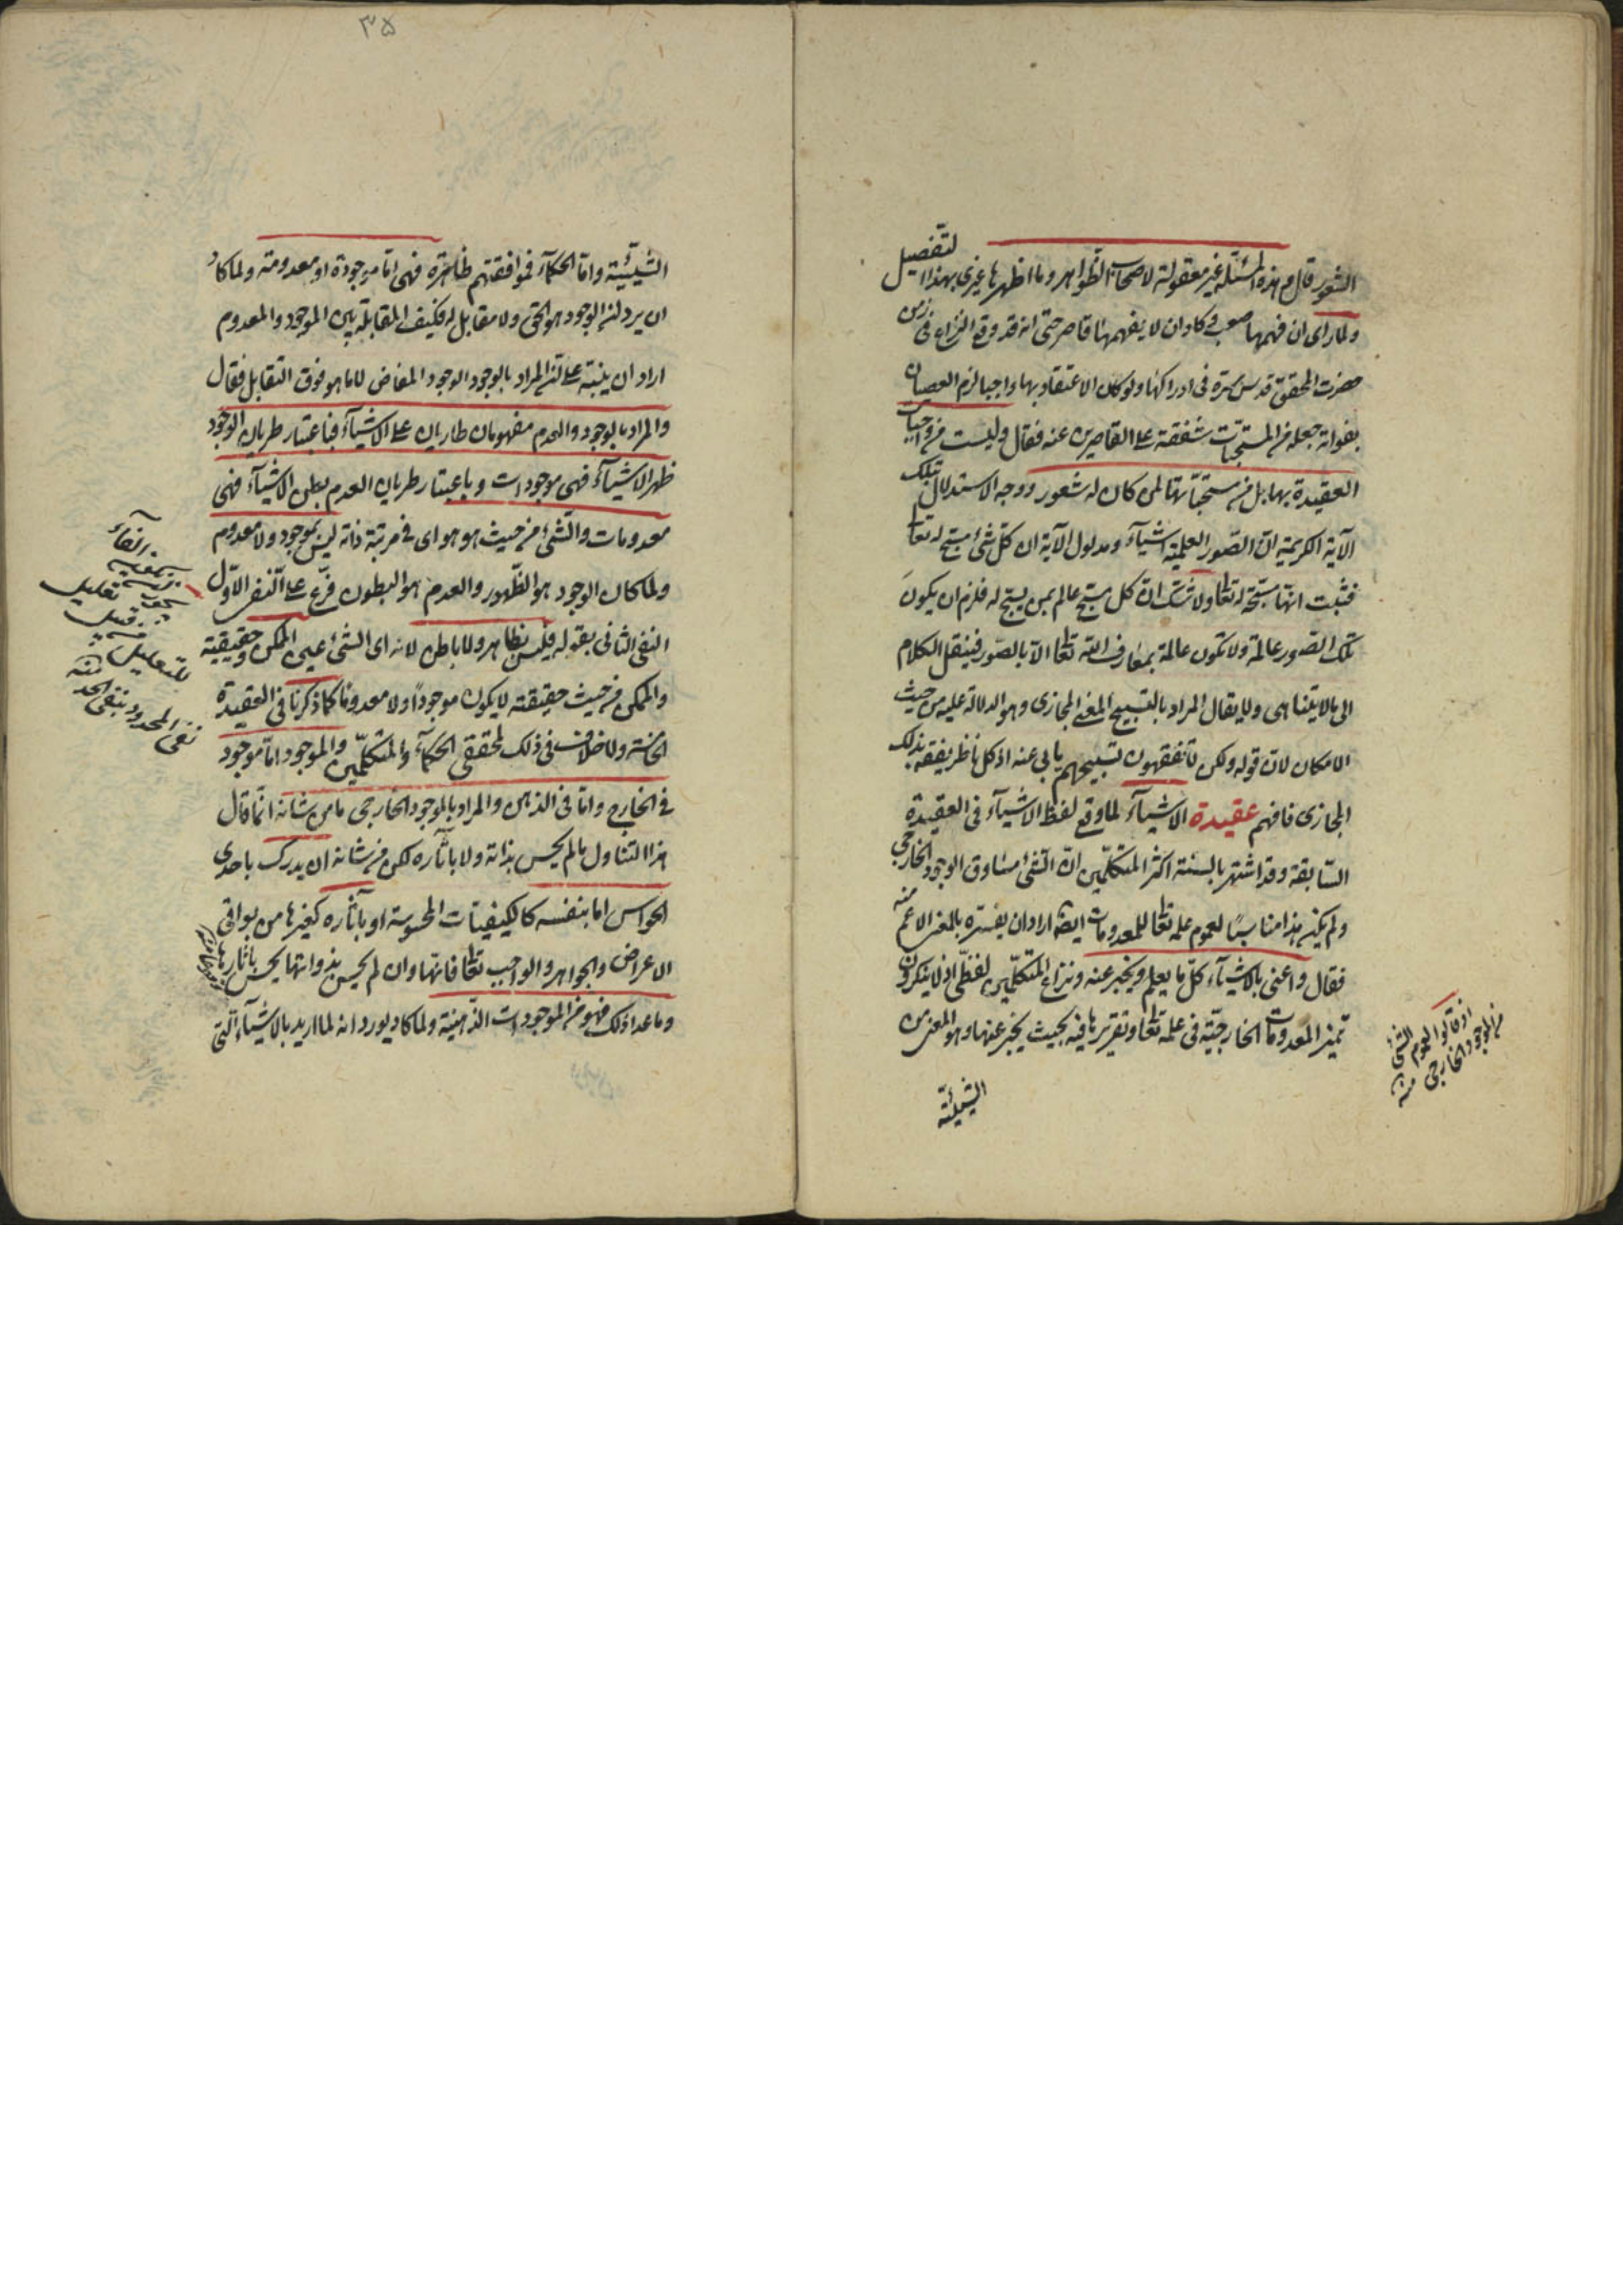 الشعور قال و هذه المسئلة غير معقولة لاصحاب الظواهر وما اظهرها غيرى بهذا التفصيل
ولما راى ان فهمها صعب وكاد ان لا يفهمها قاصر حتى انه قد وقع النزاع فى زمن
حضرت المحقق قدس سره فى ادراكها ولو كان الاعتقاد بها واجبا لزم العصيان
بفواته جعله من المستحبات شفقة على القاصرين عنه فقال وليست من واجبات
العقيدة بها بل من مستحباتها لمن كان له شعور ووجه الاستدلال بتلك
الآية الكريمة ان الصور العلمية اشياء ومدلول الآية ان كل شئ مسبح له تعا
فثبت انها مسبحة له تعا ولا شك ان كل مسبح عالم بمن يسبح له فلزم ان يكون
تلك الصور عالمة ولا تكون عالمة بمعارف الله تعا الا بالصور فينقل الكلام
الى ما لا يتناهى ولا يقال المراد بالتسبيح المعنى المجازى وهو الدلالة عليه من حيث
الامكان لان قوله ولكن لا تفقهون تسبيحهم يابى عنه اذ كل ناظر يفقه بذلك
المجازى فافهم عقيدة الاشياء لما وقع لفظ الاشياء فى العقيدة
السابقة وقد اشتهر بالسنة اكثر المتكلمين ان الشئ مساوق الوجود الخارجى
ولم يكن هذا مناسبا لعموم علمه تعا للمعدومات ايضا اراد ان يفسره بالمعنى الاعم منه
فقال واعنى بالاشياء كل ما يعلم ويخبر عنه ونزاع المتكلمين لفظى اذ لا ينكرون
تميز المعدومات الخارجية فى علمه تعا وتقريرها فيه بحيث يخبر عنها وهو المعنى من
الشيئية
اذ قالوا لعموم الشئ
من الموجود الخارجى منه
٣٥
الشيئية واما الحكماء فموافقتهم ظاهرة فهى اما موجودة او معدومة ولما كاد
ان يرد ان الوجود هو الحق ولا مقابل له فكيف المقابلة بين الموجود والمعدوم
اراد ان ينبه على ان المراد بالوجود الوجود المفاض لا ما هو فوق التقابل فقال
والمراد بالوجود والعدم مفهومان طاريان على الاشياء فباعتبار طريان الوجود
ظهر الاشياء فهى موجودات وباعتبار طريان العدم بطن الاشياء فهى
معدومات والشئ من حيث هو هو اى فى مرتبة ذاته ليس بموجود ولا معدوم
ولما كان الوجود هو الظهور والعدم هو البطون فرع على النفى الاول
النفى الثانى بقوله فليس بظاهر ولا باطن لانه اى الشئ عين الممكن وحقيقته
والممكن من حيث حقيقته لا يكون موجودا ولا معدوما كما ذكرنا فى العقيدة
الخامسة ولا خلاف فى ذلك لمحققى الحكماء والمتكلمين والموجود اما موجود
فى الخارج واما فى الذهن والمراد بالموجود الخارجى ما من شانه انما قال
هذا لتناول ما لم يحس بذاته ولا بآثاره لكن من شانه ان يدرك باحدى
الحواس اما بنفسه كالكيفيات المحسوسة او بآثاره كغيرها من بواقى
الاعراض والجواهر والواجب تعا فانها وان لم يحس بذواتها يحس بآثارها
وما عدا ذلك فهو من الموجودات الذهنية ولما كاد يورد انه لما اريد بالاشياء التى
تعليل
من قبيل
للتعليل
نفى المحدود بنفى الحد منه